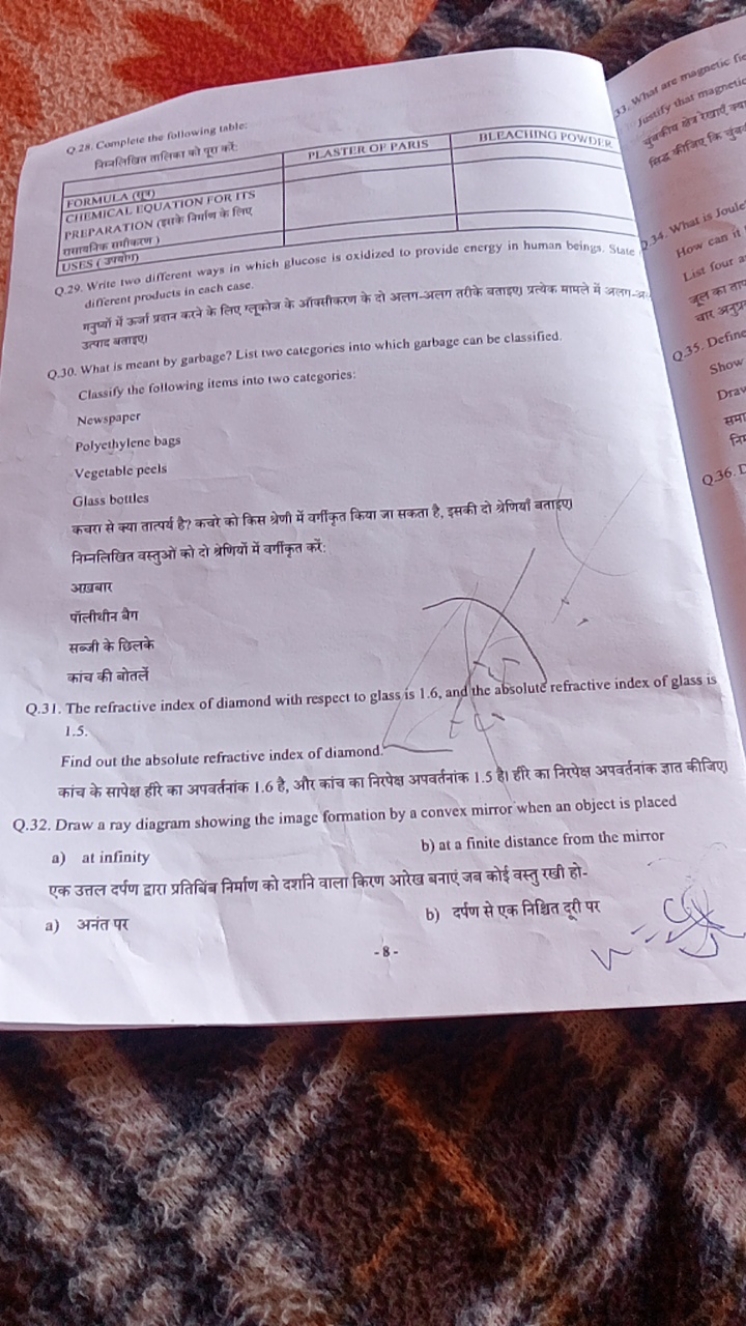 Q.28. Complete the following table:
निम्नलिखित तालिका को पूरा करें:
PLASTER OF PARIS BLEACHING POWDER
FORMULA (सूत्र)
CHEMICAL EQUATION FOR ITS
PREPARATION (इसके निर्माण के लिए
रासायनिक समीकरण )
USES ( उपयोग)
Q.29. Write two different ways in which glucose is oxidized to provide energy in human beings. State
different products in each case.
मनुष्यों में ऊर्जा प्रदान करने के लिए ग्लूकोज के ऑक्सीकरण के दो अलग-अलग तरीके बताइए। प्रत्येक मामले में
उत्पाद बताइए।
Q.30. What is meant by garbage? List two categories into which garbage can be classified.
Classify the following items into two categories:
Newspaper
Polyethylene bags
Vegetable peels
Glass bottles
कचरा से क्या तात्पर्य है? कचरे को किस श्रेणी में वर्गीकृत किया जा सकता है, इसकी दो श्रेणियाँ बताइए।
निम्नलिखित वस्तुओं को दो श्रेणियों में वर्गीकृत करें:
अख़बार
पॉलीथीन बैग
सब्जी के छिलके
कांच की बोतलें
Q.31. The refractive index of diamond with respect to glass is 1.6, and the absolute refractive index of glass is
1.5.
Find out the absolute refractive index of diamond.
कांच के सापेक्ष हीरे का अपवर्तनांक 1.6 है, और कांच का निरपेक्ष अपवर्तनांक 1.5 है। हीरे का निरपेक्ष अपवर्तनांक ज्ञात कीजिए।
Q.32. Draw a ray diagram showing the image formation by a convex mirror when an object is placed
a) at infinity b) at a finite distance from the mirror
एक उत्तल दर्पण द्वारा प्रतिबिंब निर्माण को दर्शाने वाला किरण आरेख बनाएं जब कोई वस्तु रखी हो-
a) अनंत पर b) दर्पण से एक निश्चित दूरी पर
- 8 -
33. What are magnetic
Justify that
चुंबकीय क्षेत्र रेखाएँ
सिद्ध कीजिए कि
34. What is
How can it
List four
जूल का
चार
Q.35. Define
Show
Q.36.